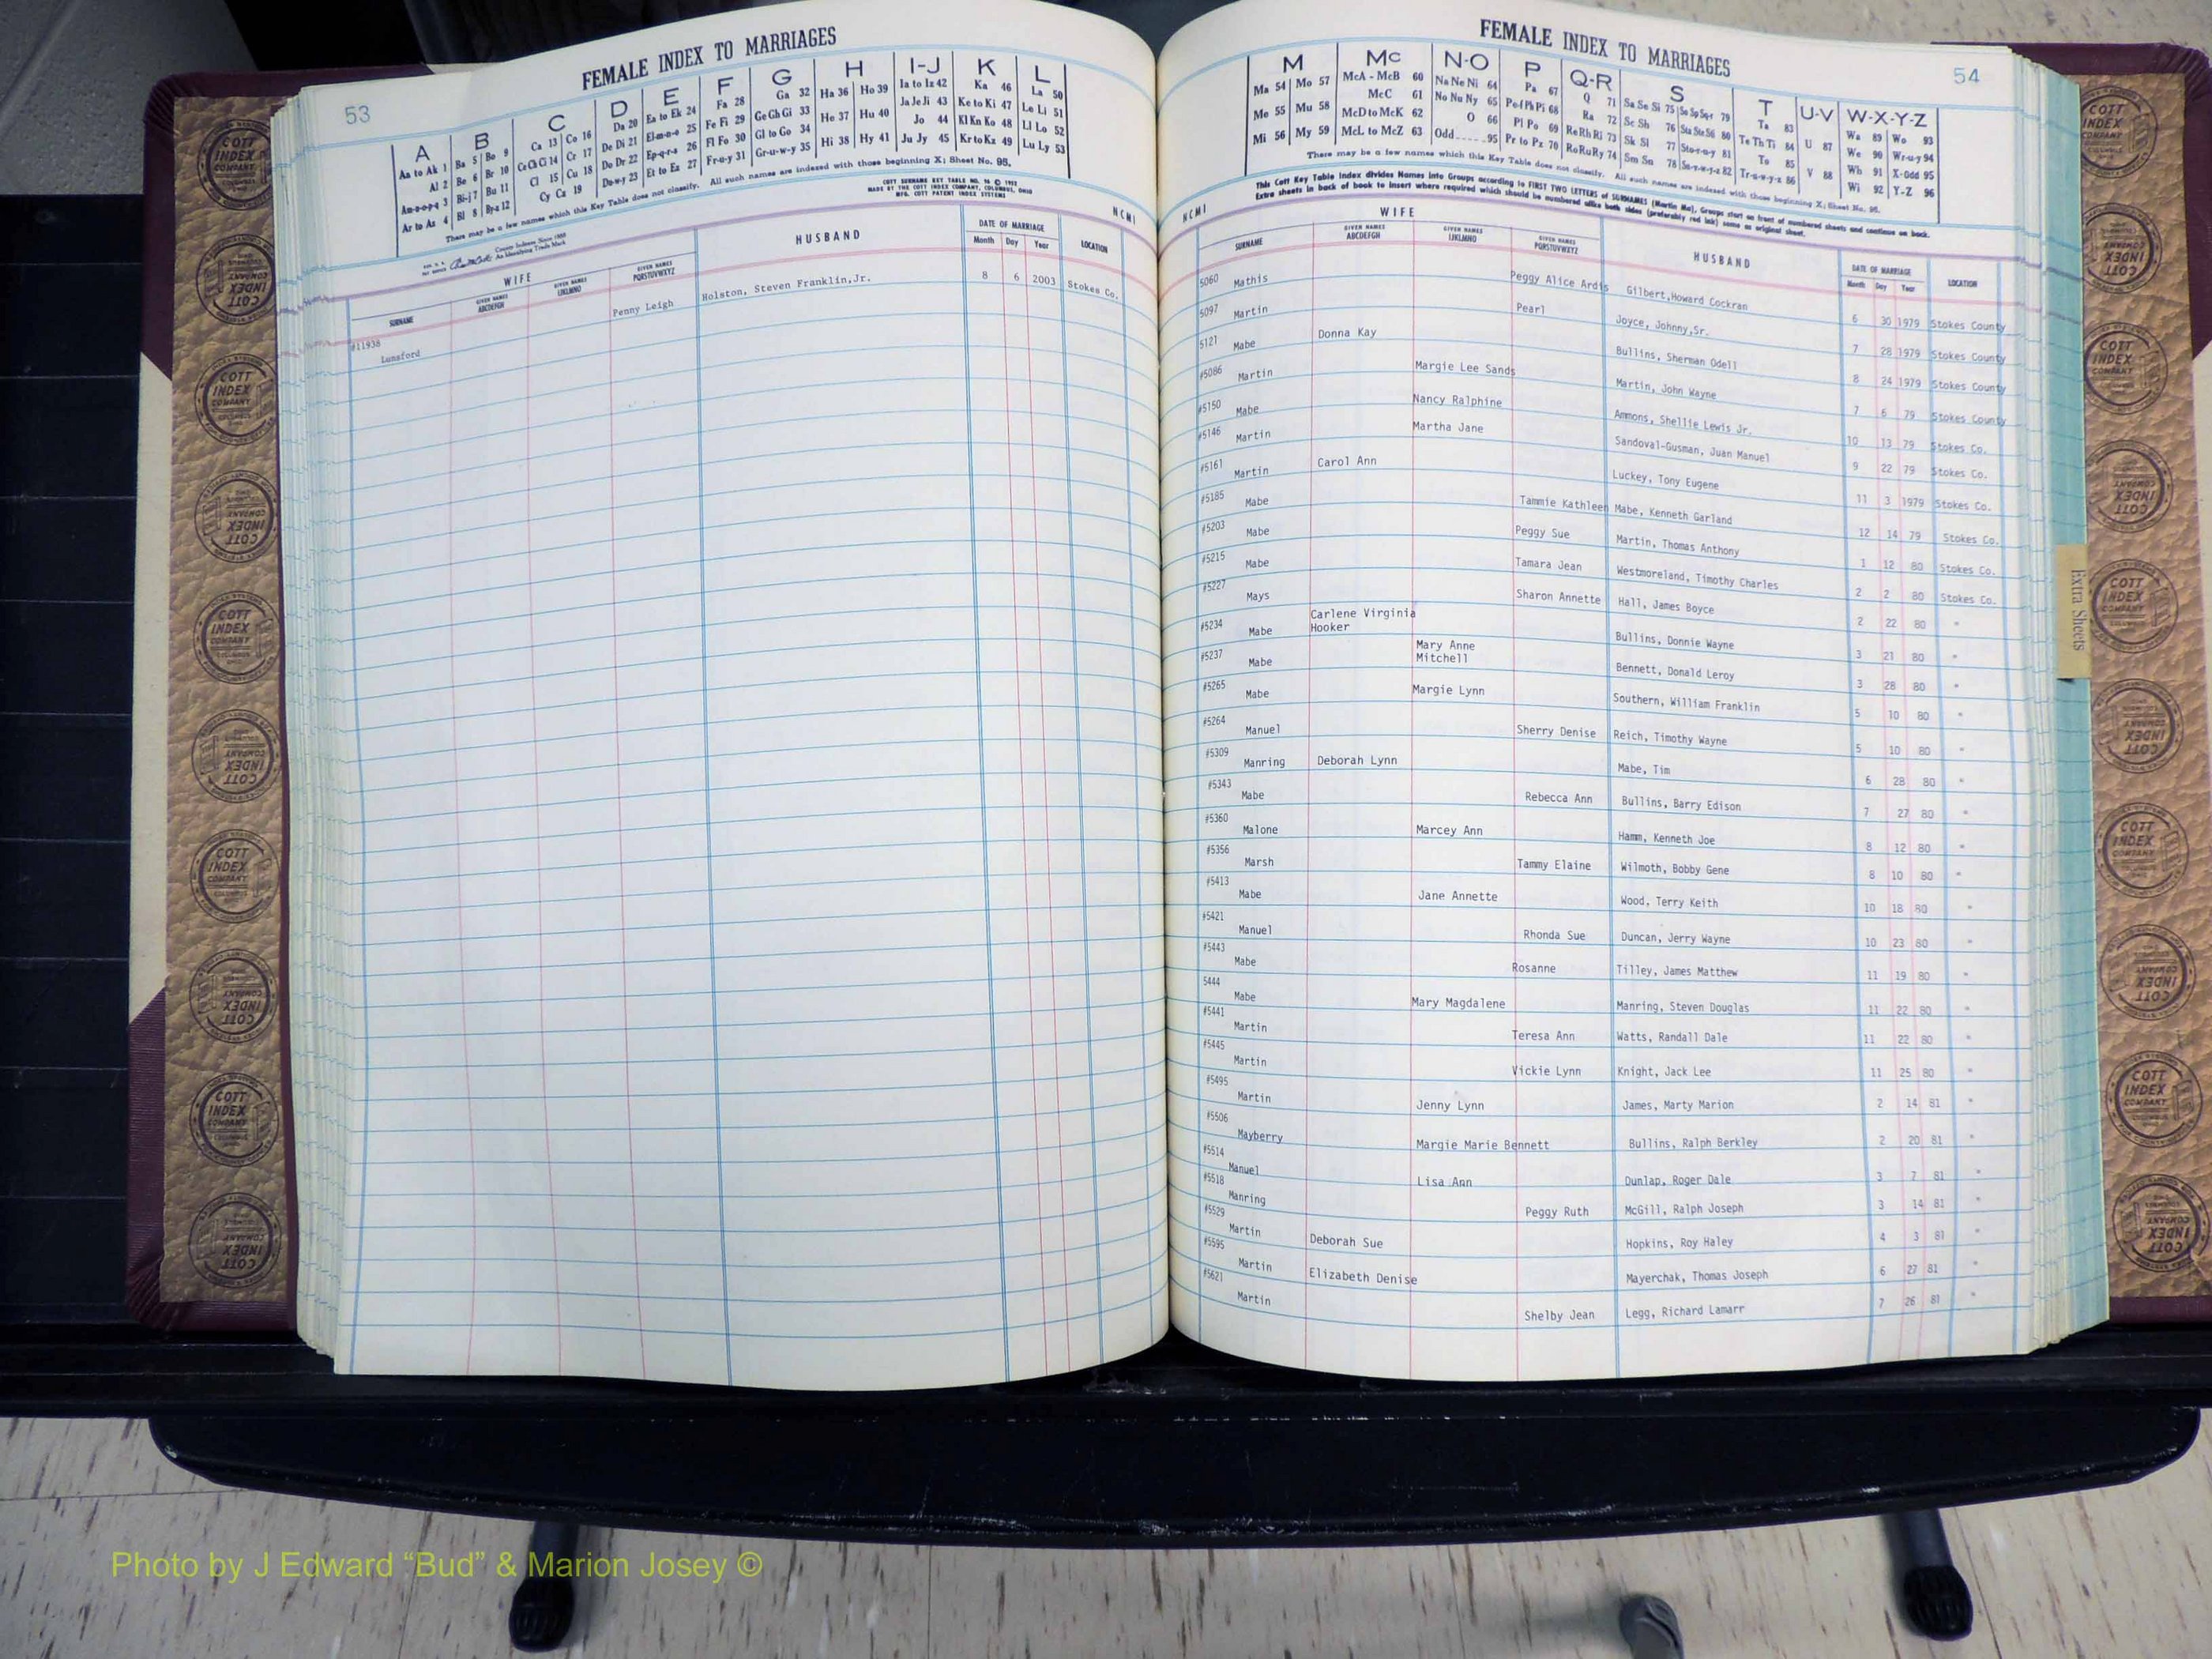 FEMALE INDEX TO MARRIAGES
53
A B C D E F G H I-J K L
Aa to Ak 1 Ba 5 Bo 9 Ca 13 Co 16 Da 20 Ea to Ek 24 Fa 28 Ga 32 Ha 36 Ho 39 Ia to Iz 42 Ka 46 La 50
Al 2 Be 6 Br 10 Ce Ch Ci 14 Cr 17 De Di 21 El-m-n-o 25 Fe Fi 29 Ge Gh Gi 33 He 37 Hu 40 Ja Je Ji 43 Ke to Ki 47 Le Li 51
Am-n-o-p-q 3 Bi-j 7 Bu 11 Cl 15 Cu 18 Do Dr 22 Ep-q-r-s 26 Fl Fo 30 Gl to Go 34 Hi 38 Hy 41 Jo 44 Kl Kn Ko 48 Ll Lo 52
Ar to Az 4 Bl 8 By-z 12 Cy Cz 19 Du-w-y 23 Et to Ez 27 Fr-u-y 31 Gr-u-w-y 35 Ju Jy 45 Kr to Kz 49 Lu Ly 53
There may be a few names which this Key Table does not classify. All such names are indexed with those beginning X; Sheet No. 95.
COTT SURNAME KEY TABLE NO.
MADE BY THE COTT INDEX COMPANY, COLUMBUS, OHIO
MFG. COTT PATENT INDEX SYSTEMS
NCMI
County Indexes Since 1888
An Identifying Trade Mark
WIFE HUSBAND DATE OF MARRIAGE LOCATION
SURNAME GIVEN NAMES ABCDEFGH GIVEN NAMES IJKLMNO GIVEN NAMES PQRSTUVWXYZ Month Day Year
#11938
Lunsford Penny Leigh Holston, Steven Franklin,Jr. 8 6 2003 Stokes Co.
FEMALE INDEX TO MARRIAGES
54
M Mc N-O P Q-R S T U-V W-X-Y-Z
Ma 54 Mo 57 McA - McB 60 Na Ne Ni 64 Pa 67 Q 71 Sa Se Si 75 So Sp Sq-r 79 Ta 83 U 87 Wa 89 Wo 93
Me 55 Mu 58 McC 61 No Nu Ny 65 Pe-f Ph Pi 68 Ra 72 Sc Sh 76 Sta Ste Sti 80 Te Th Ti 84 V 88 We 90 Wr-u-y 94
Mi 56 My 59 McD to McK 62 O 66 Pl Po 69 Re Rh Ri 73 Sk Sl 77 Sto-r-u-y 81 To 85 Wh 91 X-Odd 95
McL to McZ 63 Odd 95 Pr to Pz 70 Ro Ru Ry 74 Sm Sn 78 Su-v-w-y-z 82 Tr-u-w-y-z 86 Wi 92 Y-Z 96
There may be a few names which this Key Table does not classify. All such names are indexed with those beginning X; Sheet No. 95.
This Cott Key Table Index divides Names into Groups according to FIRST TWO LETTERS of SURNAMES (Martin Ma), Groups start on front of numbered sheets and continue on back.
Extra sheets in back of book to insert where required which should be numbered alike both sides (preferably red ink) same as original sheet.
NCMI
WIFE HUSBAND DATE OF MARRIAGE LOCATION
SURNAME GIVEN NAMES ABCDEFGH GIVEN NAMES IJKLMNO GIVEN NAMES PQRSTUVWXYZ Month Day Year
5060 Mathis Peggy Alice Ardis Gilbert,Howard Cockran 6 30 1979 Stokes County
5097 Martin Pearl Joyce, Johnny,Sr. 7 28 1979 Stokes County
5121 Mabe Donna Kay Bullins, Sherman Odell 8 24 1979 Stokes County
#5086 Martin Margie Lee Sands Martin, John Wayne 7 6 79 Stokes County
#5150 Mabe Nancy Ralphine Ammons, Shellie Lewis Jr. 10 13 79 Stokes Co.
#5146 Martin Martha Jane Sandoval-Gusman, Juan Manuel 9 22 79 Stokes Co.
#5161 Martin Carol Ann Luckey, Tony Eugene 11 3 1979 Stokes Co.
#5185 Mabe Tammie Kathleen Mabe, Kenneth Garland 12 14 79 Stokes Co.
#5203 Mabe Peggy Sue Martin, Thomas Anthony 1 12 80 Stokes Co.
#5215 Mabe Tamara Jean Westmoreland, Timothy Charles 2 2 80 Stokes Co.
#5227 Mays Sharon Annette Hall, James Boyce 2 22 80 "
#5234 Mabe Carlene Virginia Hooker Bullins, Donnie Wayne 3 21 80 "
#5237 Mabe Mary Anne Mitchell Bennett, Donald Leroy 3 28 80 "
#5265 Mabe Margie Lynn Southern, William Franklin 5 10 80 "
#5264 Manuel Sherry Denise Reich, Timothy Wayne 5 10 80 "
#5309 Manring Deborah Lynn Mabe, Tim 6 28 80 "
#5343 Mabe Rebecca Ann Bullins, Barry Edison 7 27 80
#5360 Malone Marcey Ann Hamm, Kenneth Joe 8 12 80 "
#5356 Marsh Tammy Elaine Wilmoth, Bobby Gene 8 10 80 "
#5413 Mabe Jane Annette Wood, Terry Keith 10 18 80 "
#5421 Manuel Rhonda Sue Duncan, Jerry Wayne 10 23 80 "
#5443 Mabe Rosanne Tilley, James Matthew 11 19 80 "
5444 Mabe Mary Magdalene Manring, Steven Douglas 11 22 80 "
#5441 Martin Teresa Ann Watts, Randall Dale 11 22 80 "
#5445 Martin Vickie Lynn Knight, Jack Lee 11 25 80 "
#5495 Martin Jenny Lynn James, Marty Marion 2 14 81 "
#5506 Mayberry Margie Marie Bennett Bullins, Ralph Berkley 2 20 81 "
#5514 Manuel Lisa Ann Dunlap, Roger Dale 3 7 81 "
#5518 Manring Peggy Ruth McGill, Ralph Joseph 3 14 81 "
#5529 Martin Deborah Sue Hopkins, Roy Haley 4 3 81 "
#5595 Martin Elizabeth Denise Mayerchak, Thomas Joseph 6 27 81 "
#5621 Martin Shelby Jean Legg, Richard Lamarr 7 26 81 "
Extra Sheets
COTT INDEX COMPANY
Photo by J Edward “Bud” & Marion Josey ©